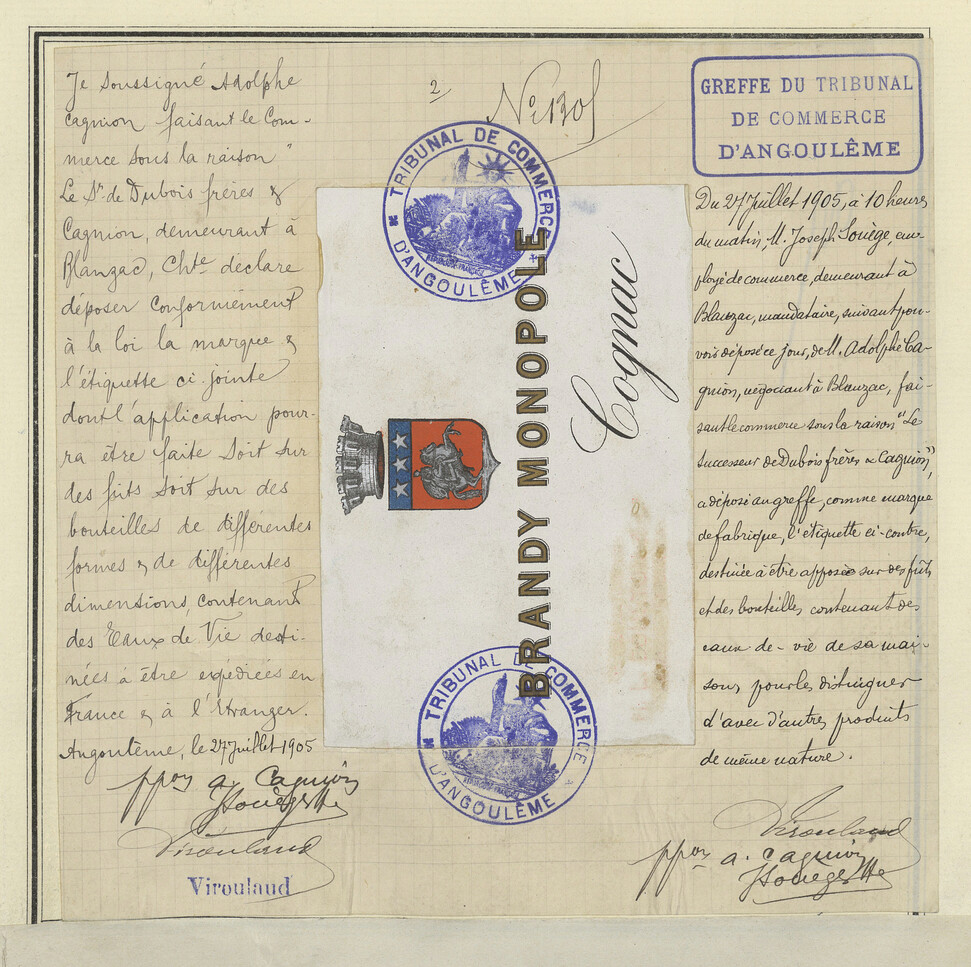 Je soussigné Adolphe
Cagnion faisant le Com-
merce sous la raison "
Le Sr. de Dubois frères &
Cagnion, demeurant à
Blanzac, Chte déclare
déposer conformément
à la loi la marque &
l'étiquette ci-jointe
dont l'application pour-
ra être faite soit sur
des fûts soit sur des
bouteilles de différentes
formes & de différentes
dimensions, contenant
des Eaux de Vie desti-
nées à être expédiées en
France & à l'Etranger.
Angoulême, le 27 juillet 1905
ppon A. Cagnion
JSouège
Viroulaud
Viroulaud
2
No 1305
TRIBUNAL DE COMMERCE
D'ANGOULÊME
RÉPUBLIQUE FRANÇAISE
BRANDY MONOPOLE
Cognac
TRIBUNAL DE COMMERCE
D'ANGOULÊME
RÉPUBLIQUE FRANÇAISE
GREFFE DU TRIBUNAL
DE COMMERCE
D'ANGOULÊME
Du 27 Juillet 1905, à 10 heures
du matin, M. Joseph Souège, em-
ployé de commerce, demeurant à
Blanzac, mandataire, suivant pou-
voir déposé ce jour, de M. Adolphe Ca-
gnion, négociant à Blanzac, fai-
sant le commerce sous la raison "Le
Successeur de Dubois frères & Cagnion",
a déposé au greffe, comme marque
de fabrique, l'étiquette ci-contre,
destinée à être apposée sur des fûts
et des bouteilles contenant des
eaux-de-vie de sa mai-
son, pour les distinguer
d'avec d'autres produits
de même nature.
Viroulaud
ppon A. Cagnion
JSouège